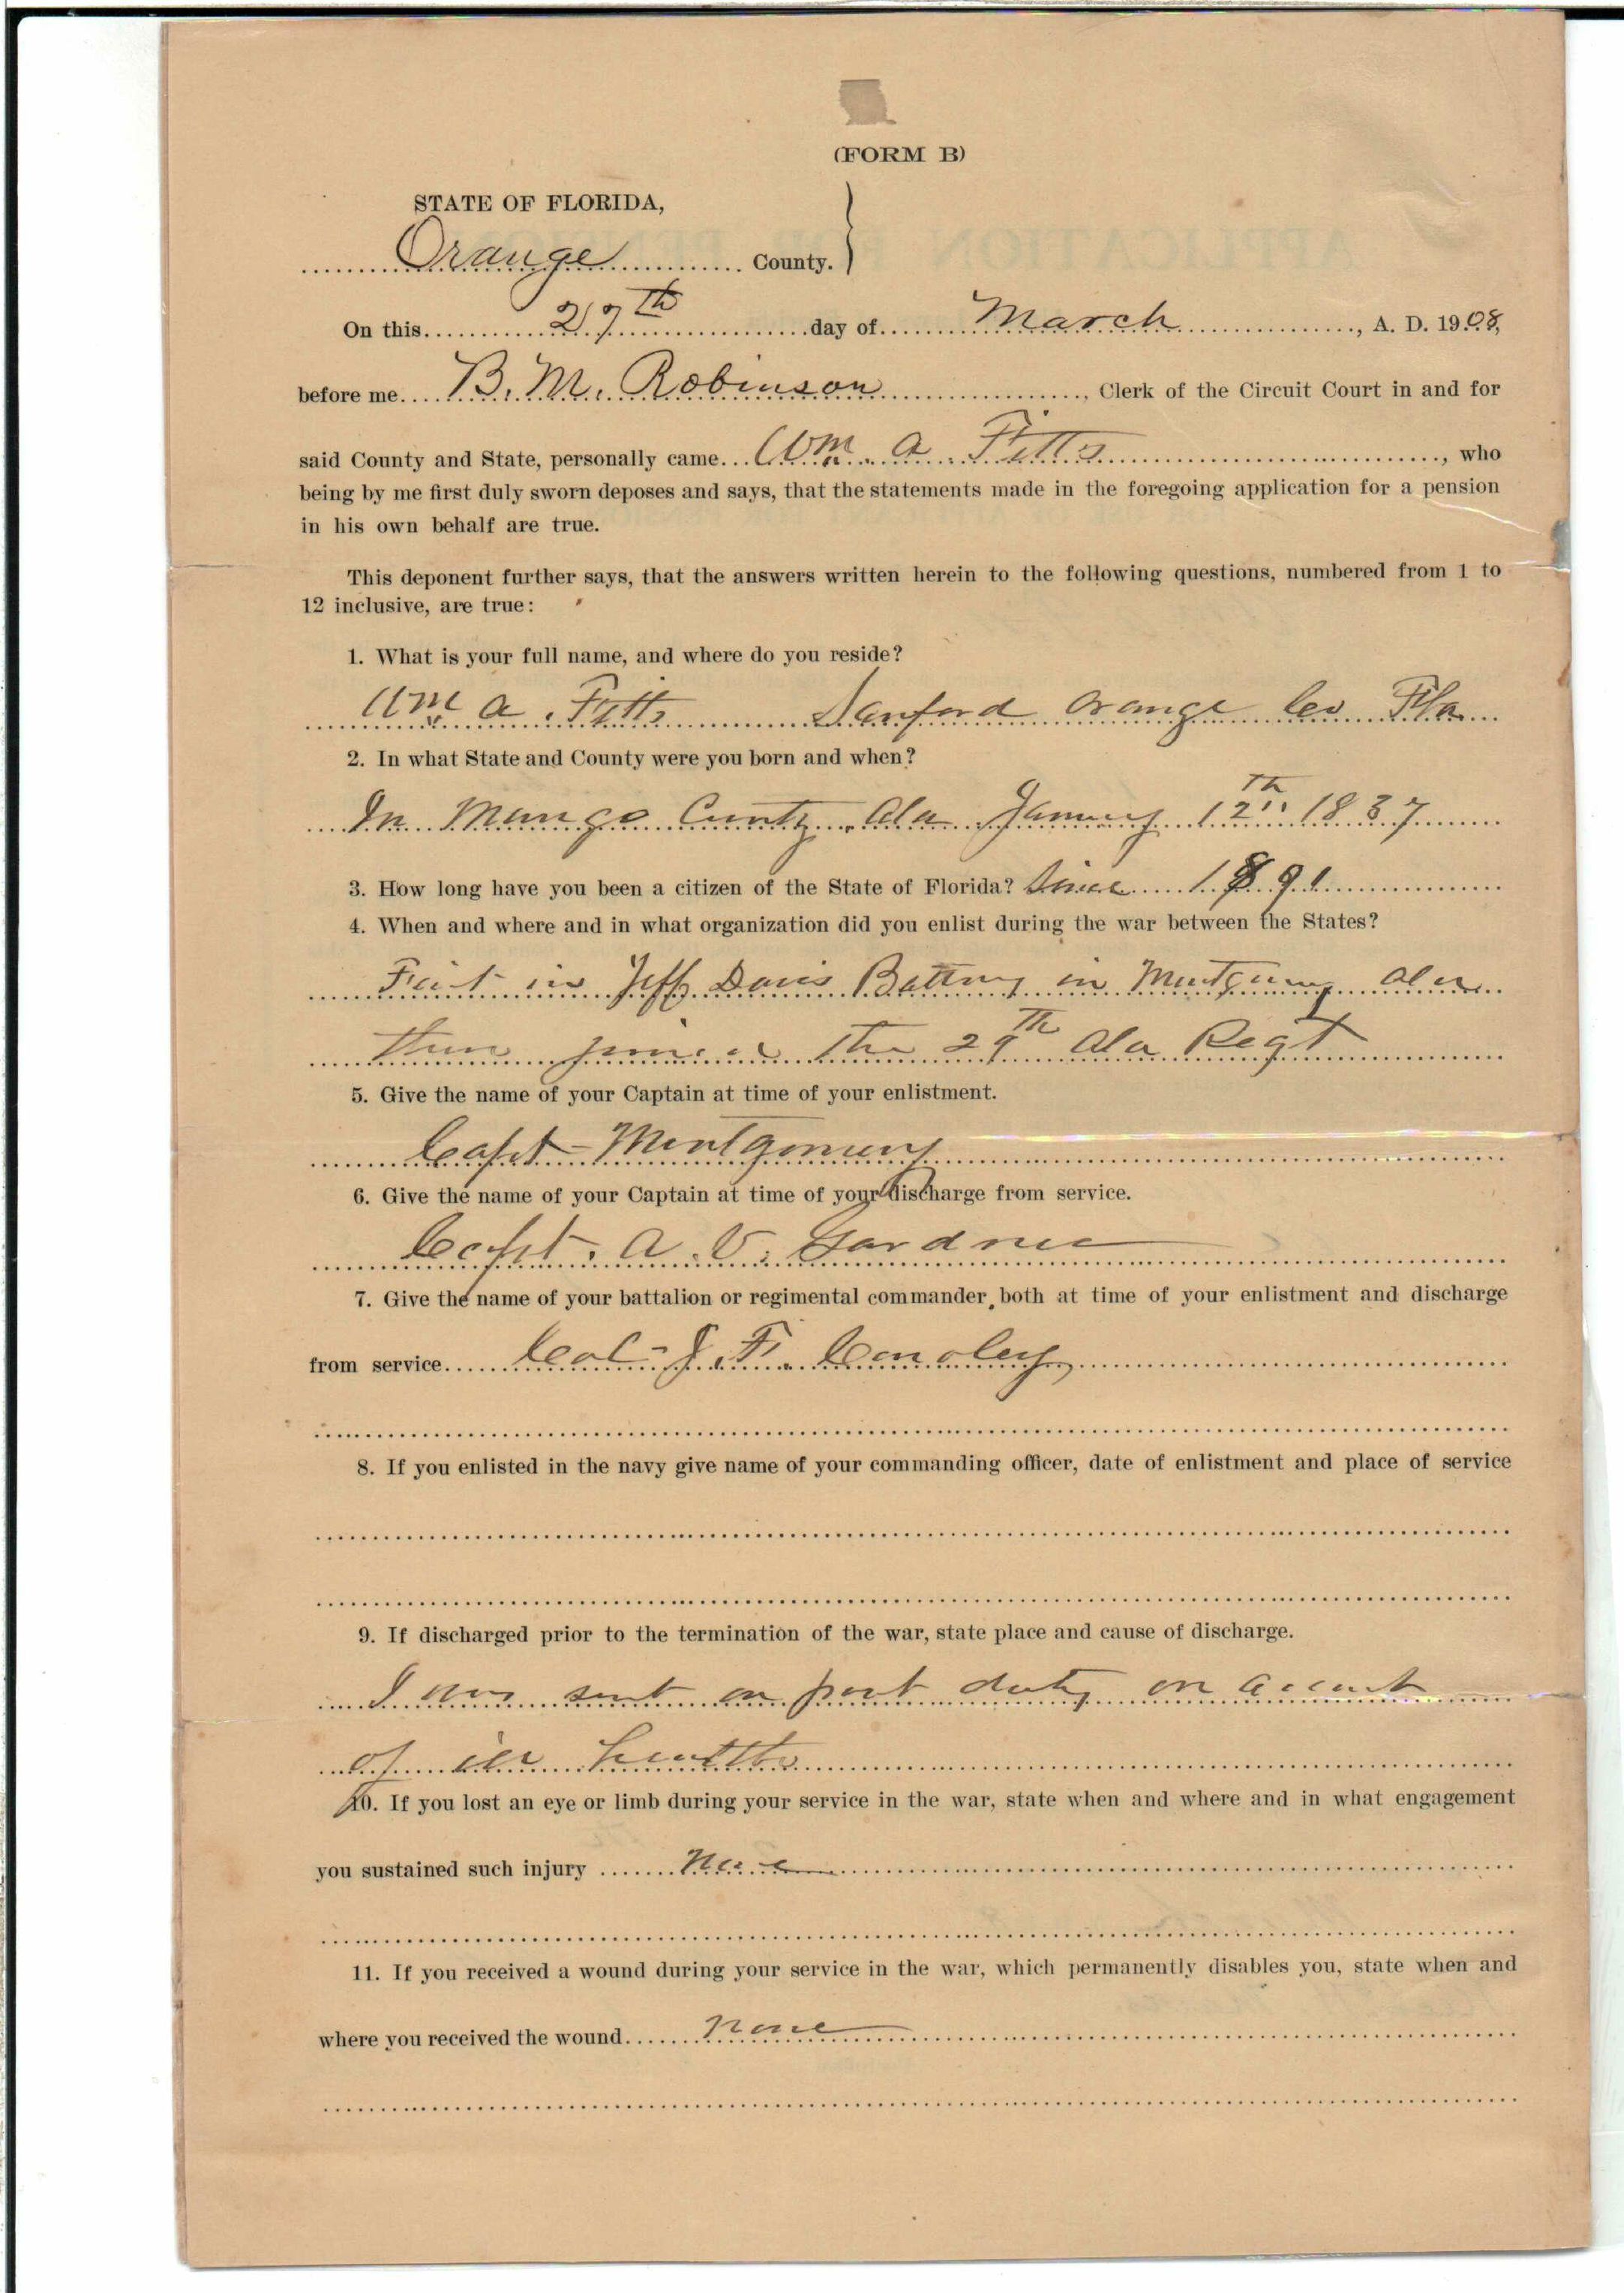 (FORM B)
STATE OF FLORIDA,
Orange County.
On this 27th day of March, A. D. 1908,
before me B. M. Robinson, Clerk of the Circuit Court in and for
said County and State, personally came Wm. A Fitts, who
being by me first duly sworn deposes and says, that the statements made in the foregoing application for a pension
in his own behalf are true.
This deponent further says, that the answers written herein to the following questions, numbered from 1 to
12 inclusive, are true:
1. What is your full name, and where do you reside?
Wm A. Fitts Sanford Orange Co Fla
2. In what State and County were you born and when?
In County Ala January 12th 1837
3. How long have you been a citizen of the State of Florida? Since 1891
4. When and where and in what organization did you enlist during the war between the States?
First in Jeff Davis Battery in Montgomery Ala
then the 29th Ala Regt
5. Give the name of your Captain at time of your enlistment.
Capt - Montgomery
6. Give the name of your Captain at time of your discharge from service.
Capt. A. V. Gardner
7. Give the name of your battalion or regimental commander, both at time of your enlistment and discharge
from service Col - J. F. Conoley
8. If you enlisted in the navy give name of your commanding officer, date of enlistment and place of service
9. If discharged prior to the termination of the war, state place and cause of discharge.
I was sent on post duty on account
of ill health
10. If you lost an eye or limb during your service in the war, state when and where and in what engagement
you sustained such injury None
11. If you received a wound during your service in the war, which permanently disables you, state when and
where you received the wound none